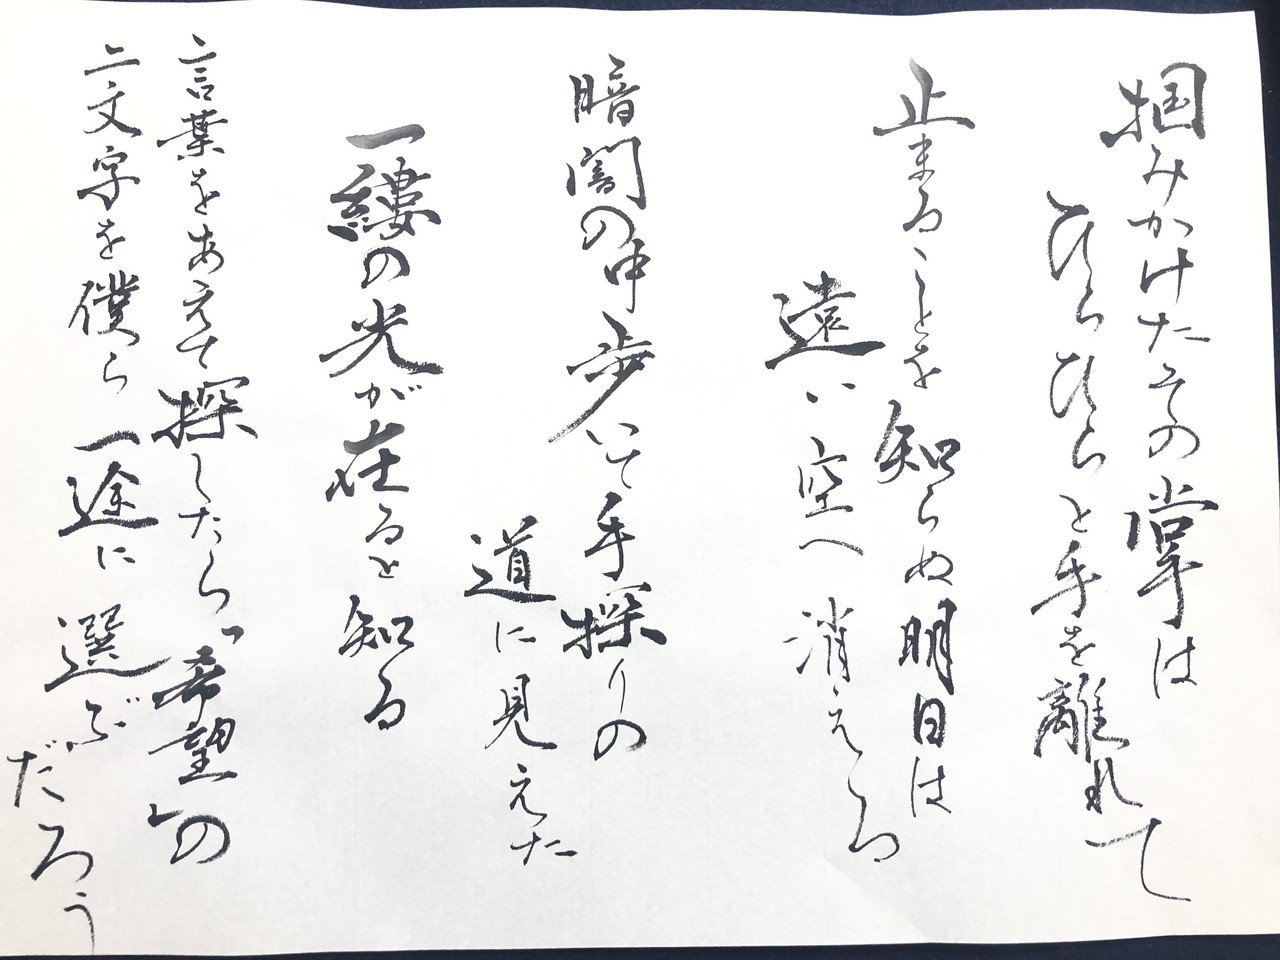 掴みかけたその掌は
ひらひらと手を離れて
止まることを知らぬ明日は
遠い空へ消える
暗闇の中歩いて手探りの
道に見えた
一縷の光が在ると知る
言葉をあえて探したら「希望」の
二文字を僕ら一途に選ぶだろう